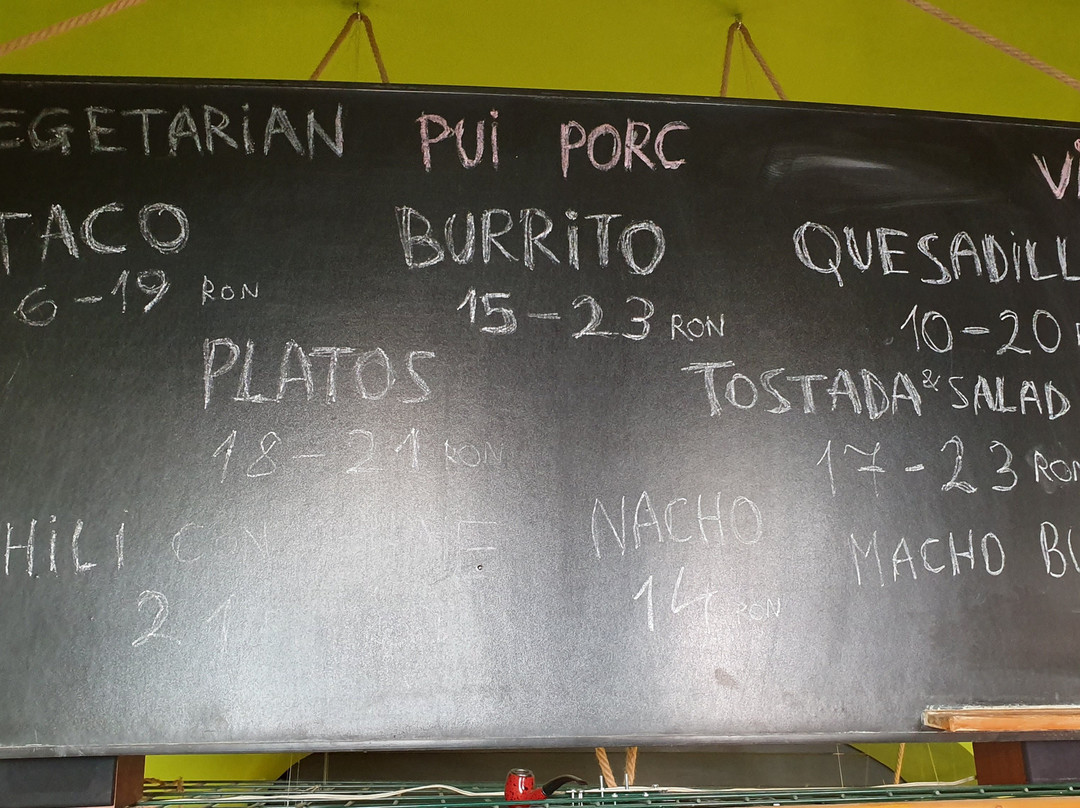 EGETARIAN PUI PORC VI
TACO BURRITO QUESADILL
6-19 RON 15-23 RON 10-20 R
PLATOS TOSTADA & SALAD
18-21 RON 17-23 RON
HILI CON NACHO MACHO BU
21 14 RON